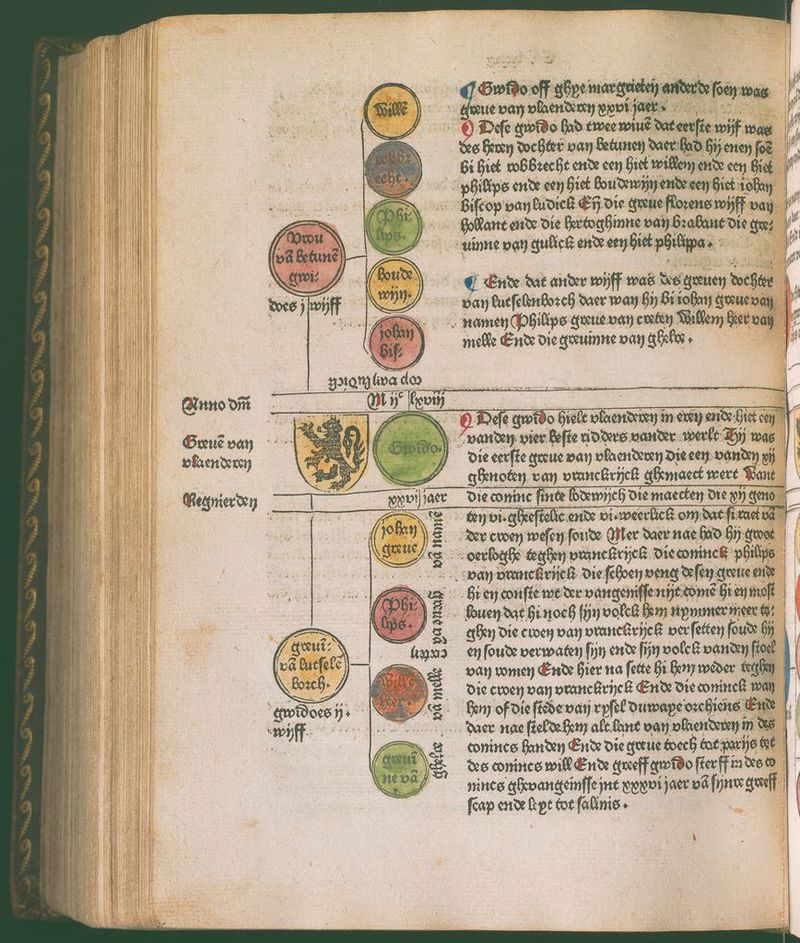 Willē
robbr
echt.
Phi
lips.
Vrou
vā betunē
gwi:
does j wijff
boude
wijn.
johan
bis:
cop van ludic
¶ Gwido off ghye margrieten ander de soen was
greue van vlaenderen xxvi jaer.
Dese gwido had twee wiuē dat eerste wijf was
des heren dochter van betunen daer had hij enen soē
bi hiet robbrecht ende een hiet willem ende een hiet
philips ende een hiet boudewijn ende een hiet iohan
biscop van ludick Eñ die greue florens wijff van
hollant ende die hertoghinne van brabant die gre:
uinne van gulick ende een hiet philippa.
¶ Ende dat ander wijff was des greuen dochter
van lutselenborch daer wan hy bi iohan greue van
namen Philips greue van creten Willem heer van
melle Ende die greuinne van ghelre.
Anno dn̄i
M ijᶜ lxviij
Greuē van
vlaenderen
Gwido.
Regnierden
xxvi jaer
johan
greue
vā namē
Phi:
lips.
greue van
creten
greui:
vā lutselē
borch.
gwidoes ij.
wijff
Wille
heer.
vā melle
greui
ne vā
ghelre
Dese gwido hielt vlaenderen in eren ende hiet een
vanden vier beste ridders vander werlt Hij was
die eerste greue van vlaenderen die een vanden xij
ghenoten van vranckrijck ghemaect wert Want
die coninc sinte lodewijch die maecten die xij geno
ten vi. gheestelic ende vi. weerlick om dat si raet vā
der croen wesen soude Mer daer nae had hij groot
oerloghe teghen vranckrijck die coninck philips
van vranckrijck die schoen veng desen greue ende
hi en conste wt der vangenisse nijt comē hi en most
louen dat hi noch sijn volck hem nymmermeer te:
ghen die croen van vranckrijck versetten soude hij
en soude verwaten sijn ende sijn volck vanden stoel
van romen Ende hier na sette hi hem weder teghen
die croen van vranckrijck Ende die coninck wan
hem of die stede van rysel duwaye orchiens Ende
daer nae stelde hem alt lant van vlaenderen in des
conincs handen Ende die greue toech tot parijs tot
des conincs will Ende greeff gwido sterff in des co
nincs ghevangeinsse int xxxvi jaer vā sijnre greeff
scap ende leyt tot salinis.